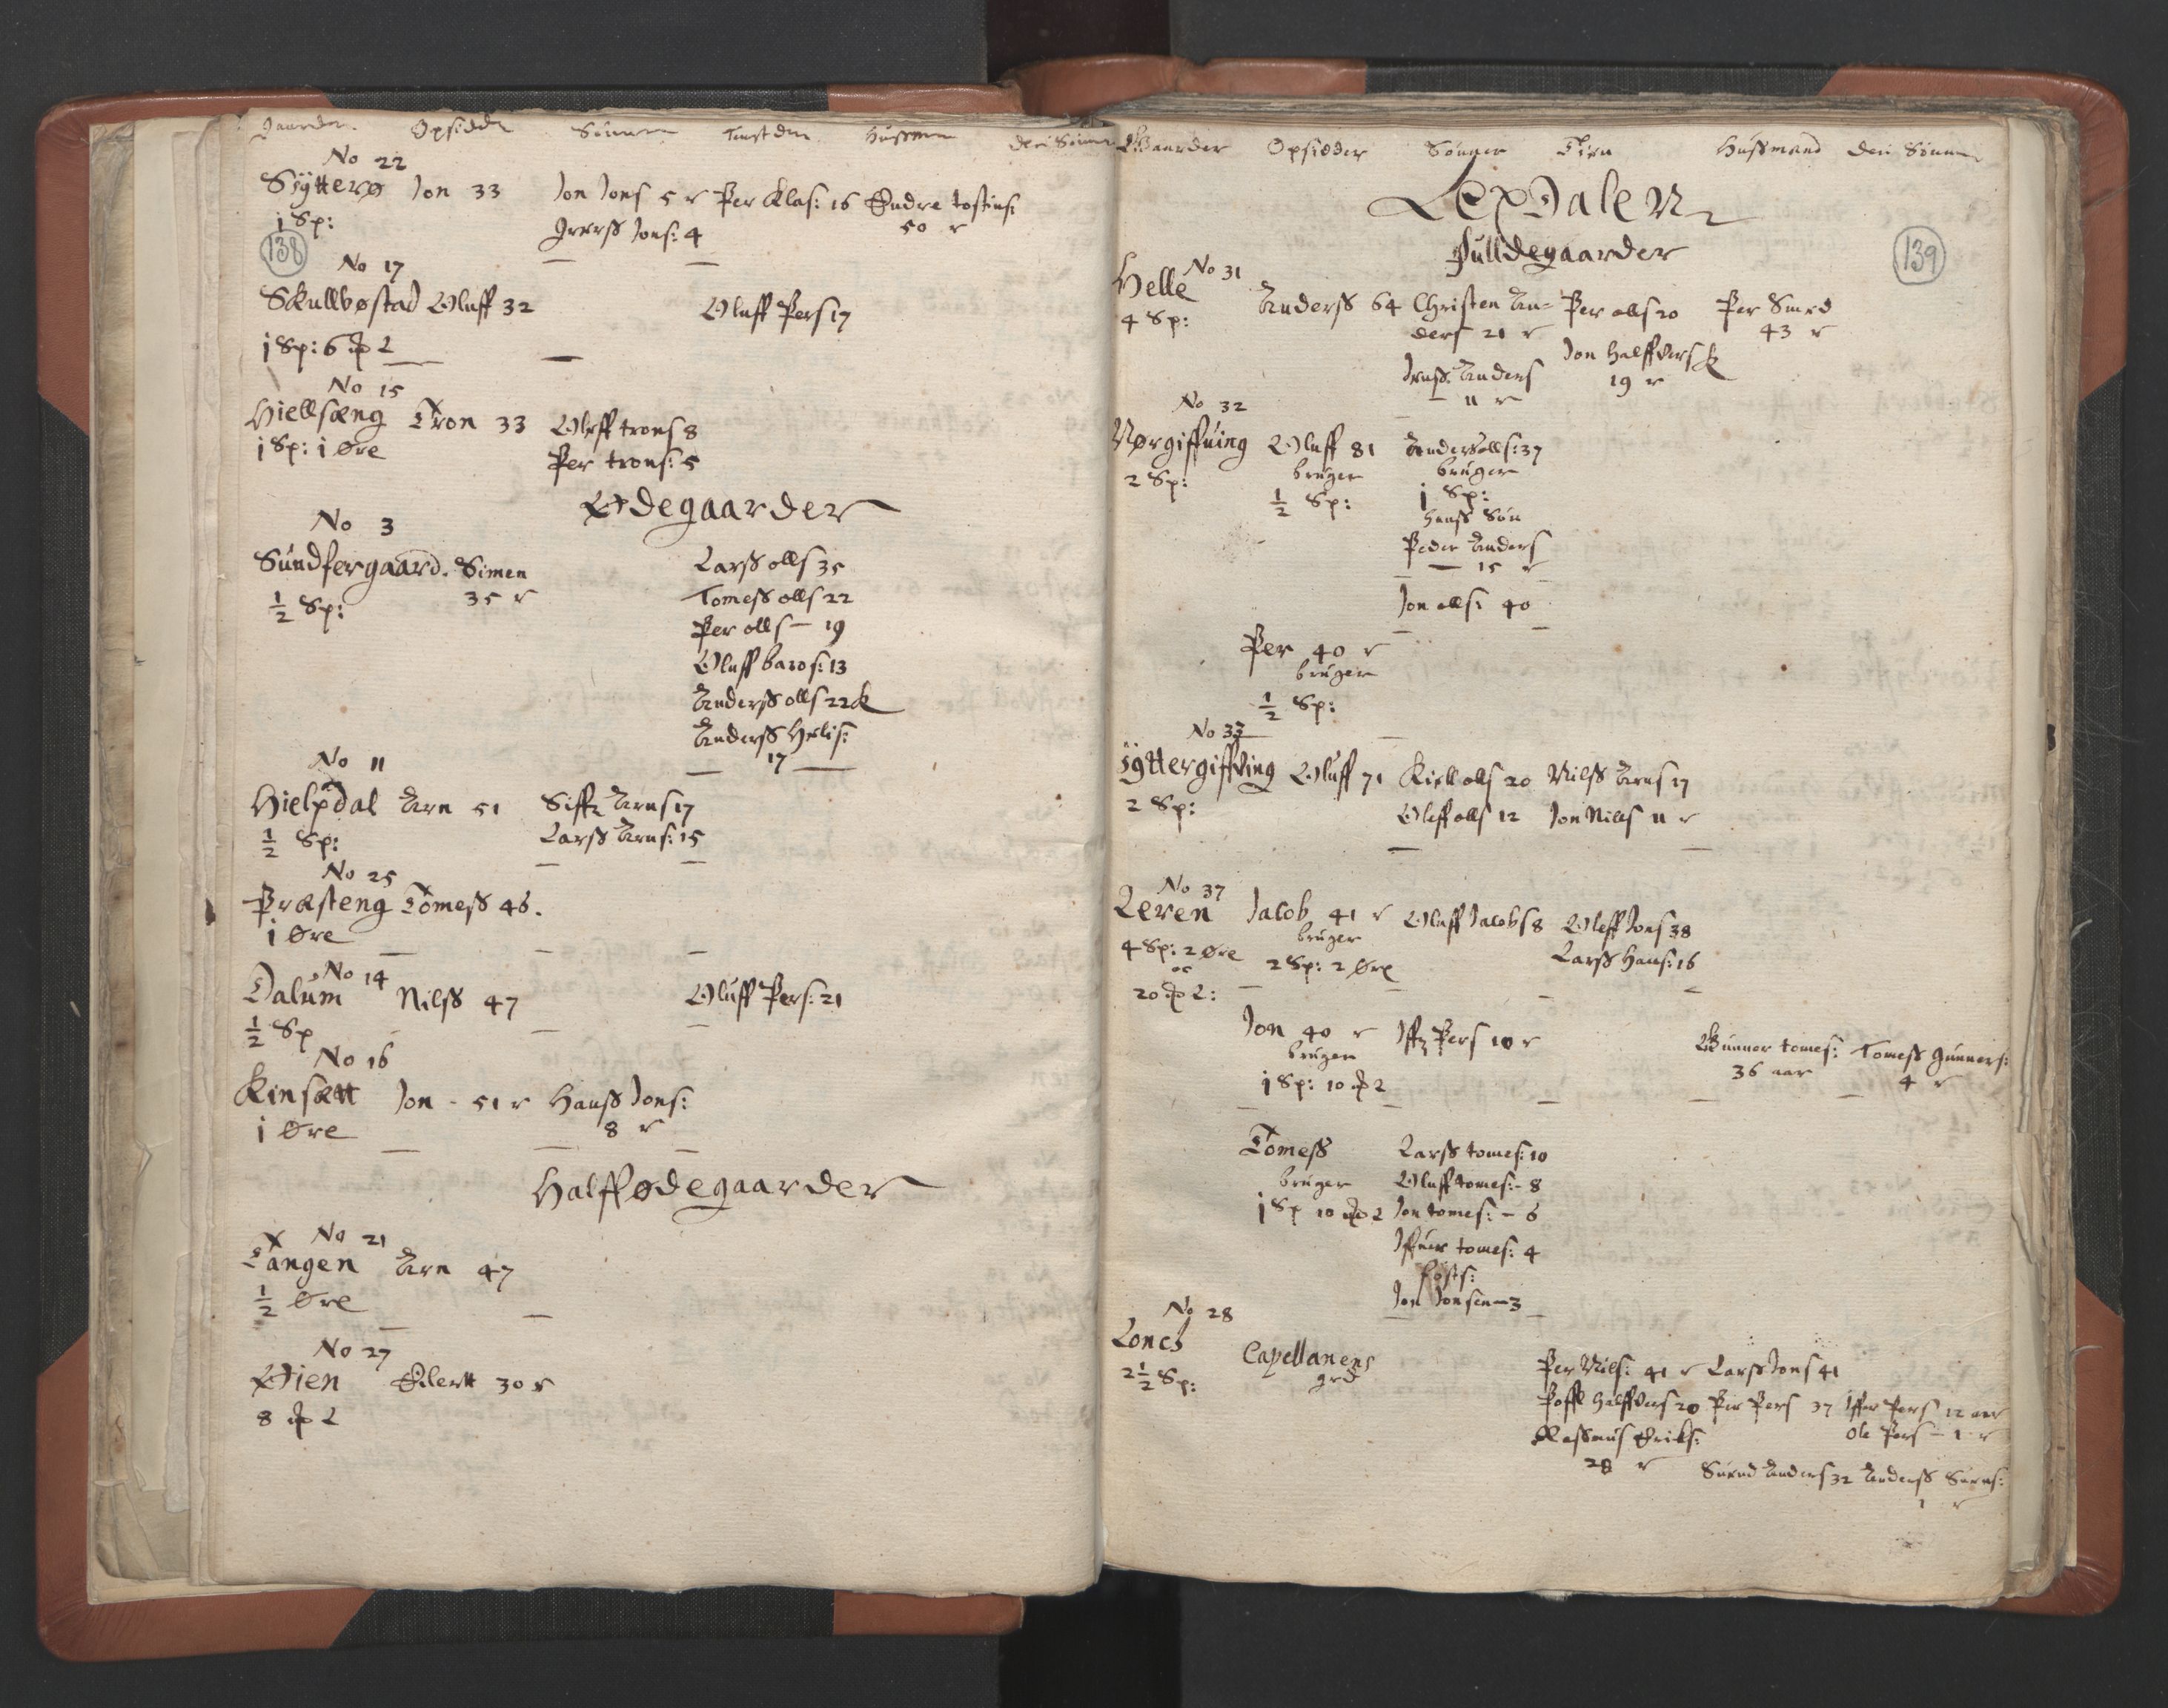 Gaarder Opsidder Sönner Tienisten Hussmen deri Sönner
No 22
Sÿtterø Jon 33 Jon Jons 5 r Per Klas: 16 Endre tostens:
1 Sp: Jverss Jons: 4 50 r
138
No 17
Skullbøstad Oluff 32 Oluff Pers 17
j Sp: 6 ℔ L
No 15
Hiellsæng Tron 33 Oleff trons 8
j Sp: i Øre Per trons: 5
Ødegaarder
No 3
Sundfergaard. Simen Larss olls 35
½ Sp: 35 r Tomess olls 22
Per olls — 19
Oluff baros: 13
Anderss olls 22 k
Anderss Helis:
17
No 11
Hielpdal Arn 51 Siffr Arns 17
½ Sp: Larss Arns: 15
No 25
Præsteng Tomess 46.
i Øre
No 14
Dalum Nilss 47 Oluff Pers: 21
½ Sp
No 16
Kinsætt Jon - 51 r Hanss Jons:
i Øre 8 r
Halffødegaarder
No 21
Tangen Arn 47
½ Øre
No 27
Øien Elertt 30 r
8 ℔ L
Gaarder Opsidder Sönner Tien Hussmend deri Sönner
Lexdalen
fulldegaarder
139
No 31
Helle Anderss 64 Christen An= Per olls 20 Per Smed
4 Sp: ders 21 r 43 r
Jenss Anders Jon Halffvers k
11 r 19 r
No 32
Nørgiffuing Oluff 81 Anders olls: 37
2 Sp: bruger bruger
½ Sp: j Sp:
hanss Sön
Peder Anders
— 15 r
Jon olls: 40
Per 40 r
bruger
½ Sp:
No 33
ÿttergiffving Oluff 71 Kield olls 20 Nilss Arns 17
2 Sp: Oleff olls 12 Jon Nills 11 r
No 37
Leren Jacob 41 r Oluff Jacobs 8 Oleff Jons 38
4 Sp: 2 Øre bruger Larss Hans: 16
oc 2 Sp: 2 Øre
20 ℔ L:
Jon 40 r Iffr Pers 10 r Gunner tomes: Tomess Gunners:
bruger 36 aar 4 r
j Sp: 10 ℔ L
Tomess Larss tomes: 10
bruger Oluff tomes: - 8
j Sp 10 ℔ L Jon tomes: - 6
Iffuer tomes: 4
fosts:
Jon Jonsen — 3
No 28
Lonch Capellanens Per Nils: 41 r Larss Jons 41
2½ Sp: grd Poffl Halffvers 20 Per Pers 37 Iffer Pers 12 aar
Rassmus Eriks: Ole Pers — 1 r
28 r Suend Anders 32 Anderss Suens:
1 r